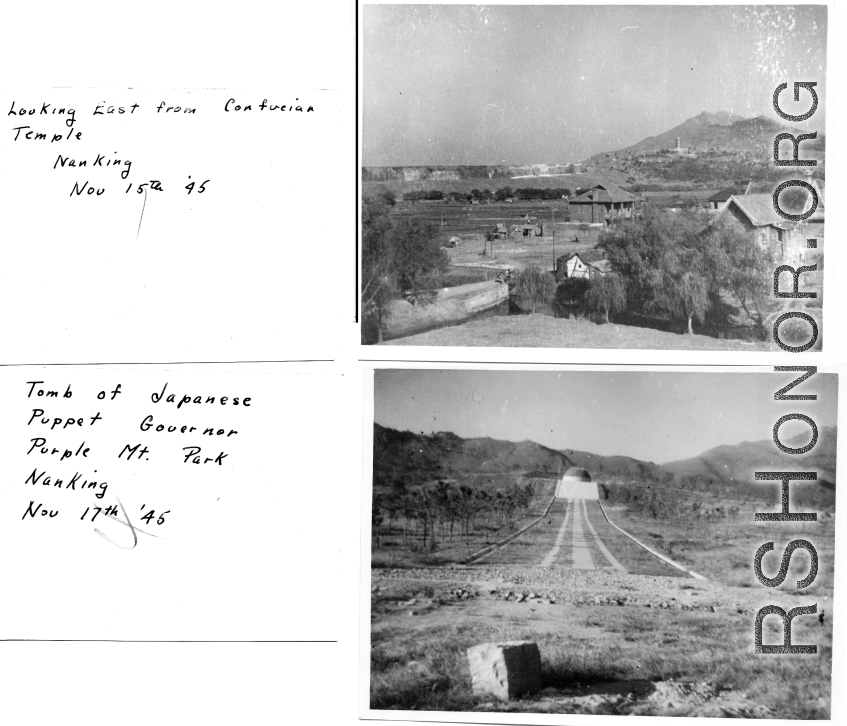 Looking East from Confucian
Temple
Nanking
Nov 15th '45
Tomb of Japanese
Puppet Governor
Purple Mt. Park
Nanking
Nov 17th '45
RSHONOR.ORG